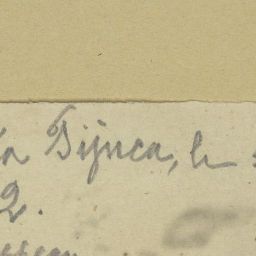 la Tijuca, le
2.